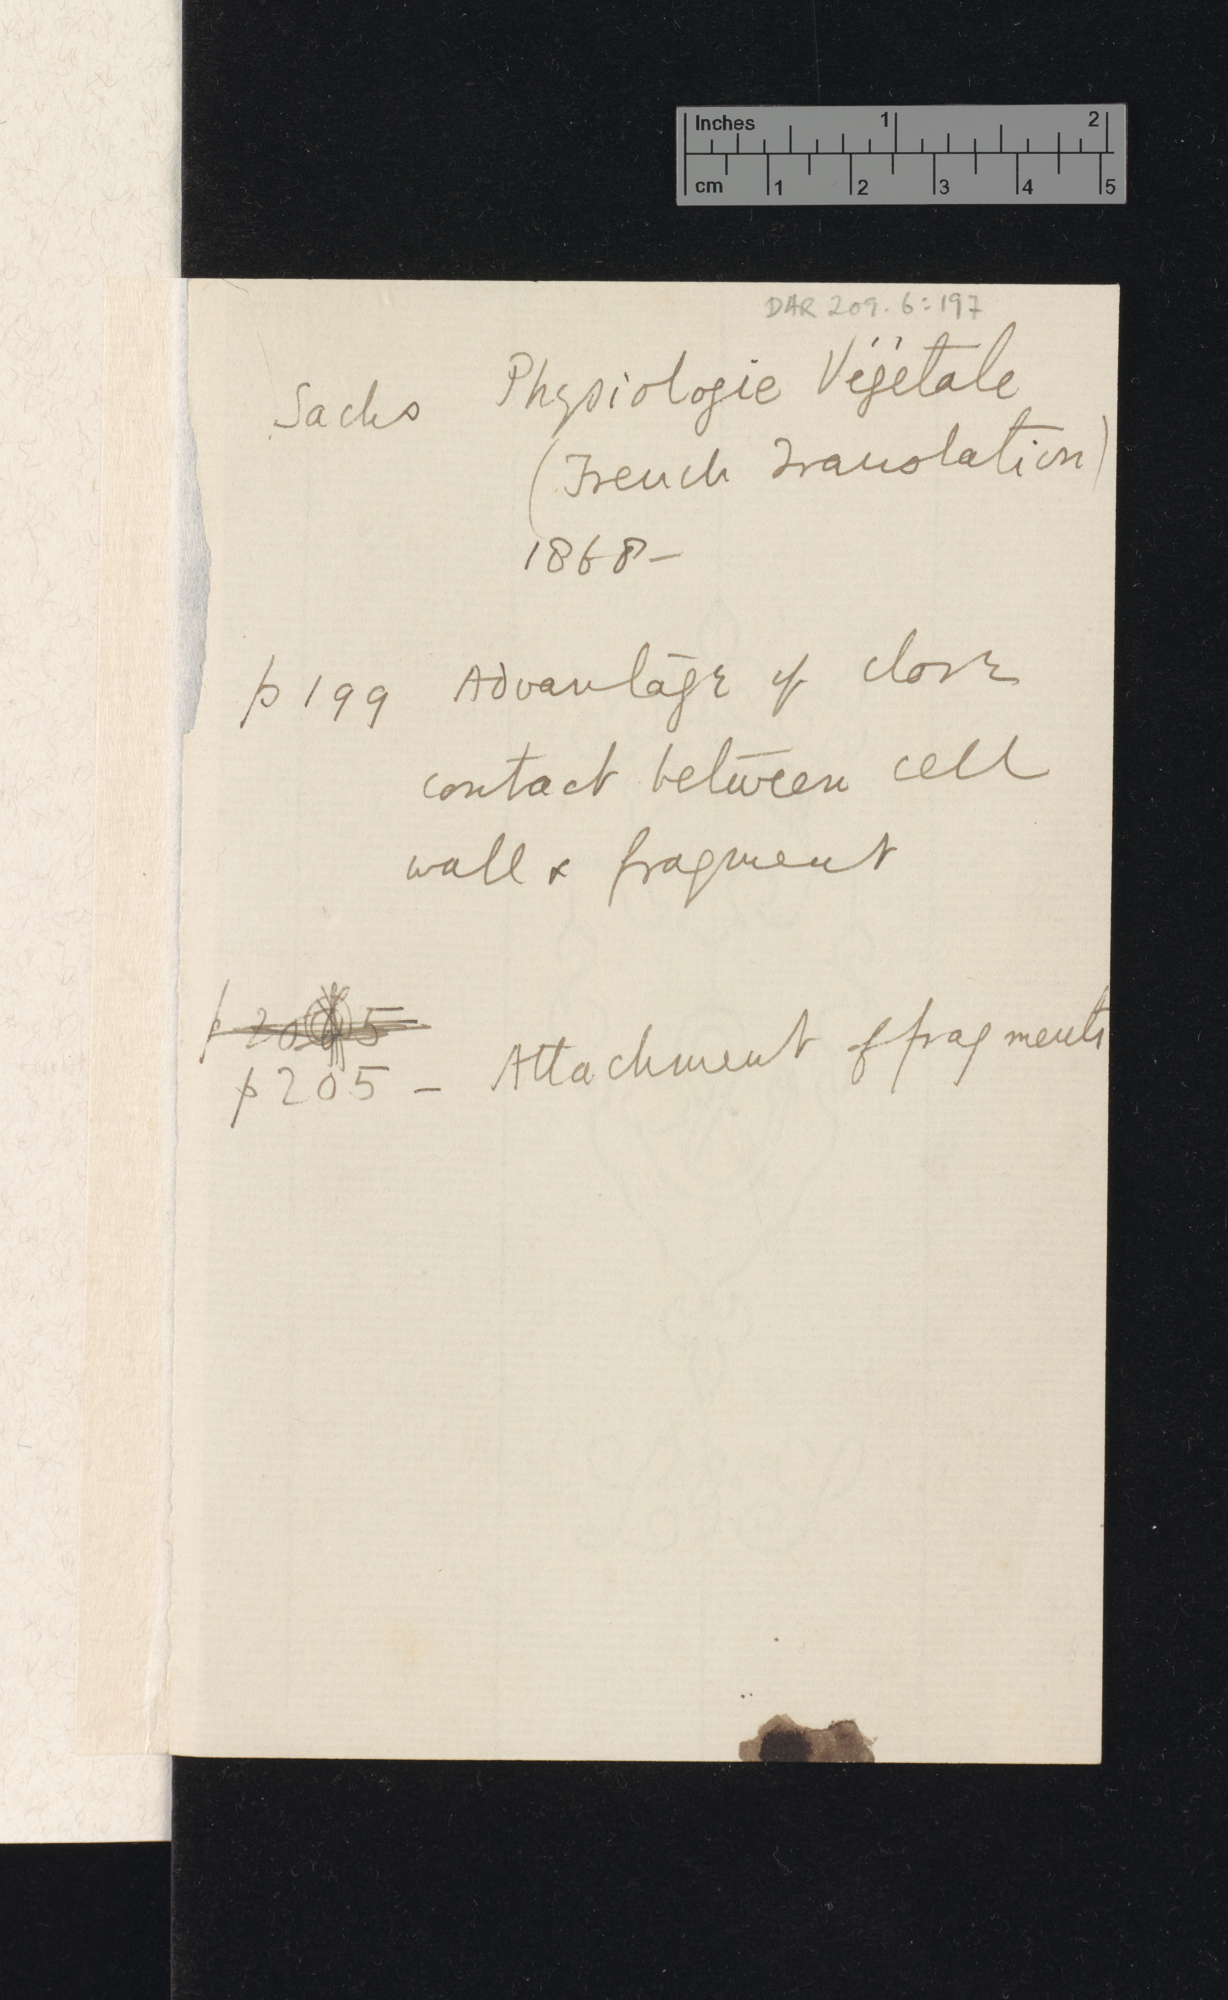 Inches 1 2
cm 1 2 3 4 5
DAR 209.6:197
Sachs Physiologie Végétale
(French Translation)
1868–
p 199 Advantage of close
contact between cell
wall & fragment
p 205 – Attachment of fragments